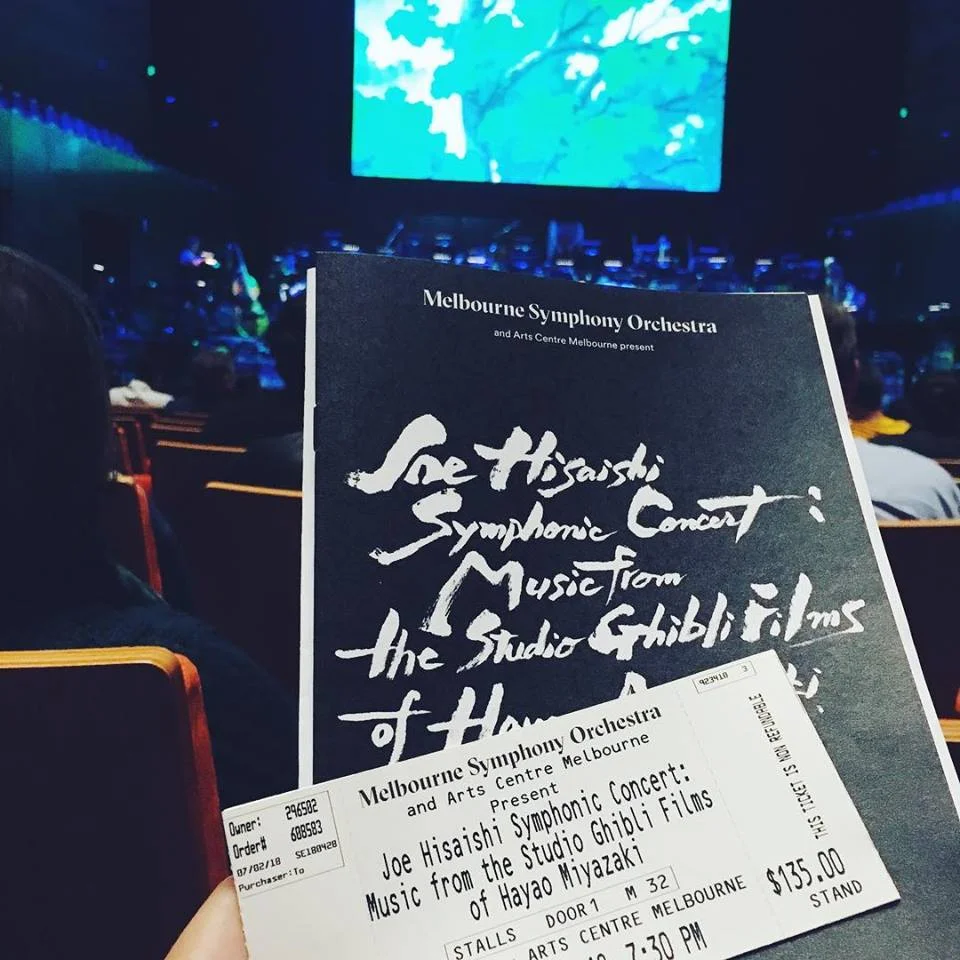 Melbourne Symphony Orchestra
and Arts Centre Melbourne present
Joe Hisaishi
Symphonic Concert:
Music from
the Studio Ghibli Films
of
Owner: 296502
Order# 608583
07/02/18 SE180428
Purchaser:To
Melbourne Symphony Orchestra
and Arts Centre Melbourne
Present
Joe Hisaishi Symphonic Concert:
Music from the Studio Ghibli Films
of Hayao Miyazaki
STALLS DOOR1 M 32
ARTS CENTRE MELBOURNE
7:30 PM
923410 3
THIS TICKET IS NON REFUNDABLE
$135.00
STAND